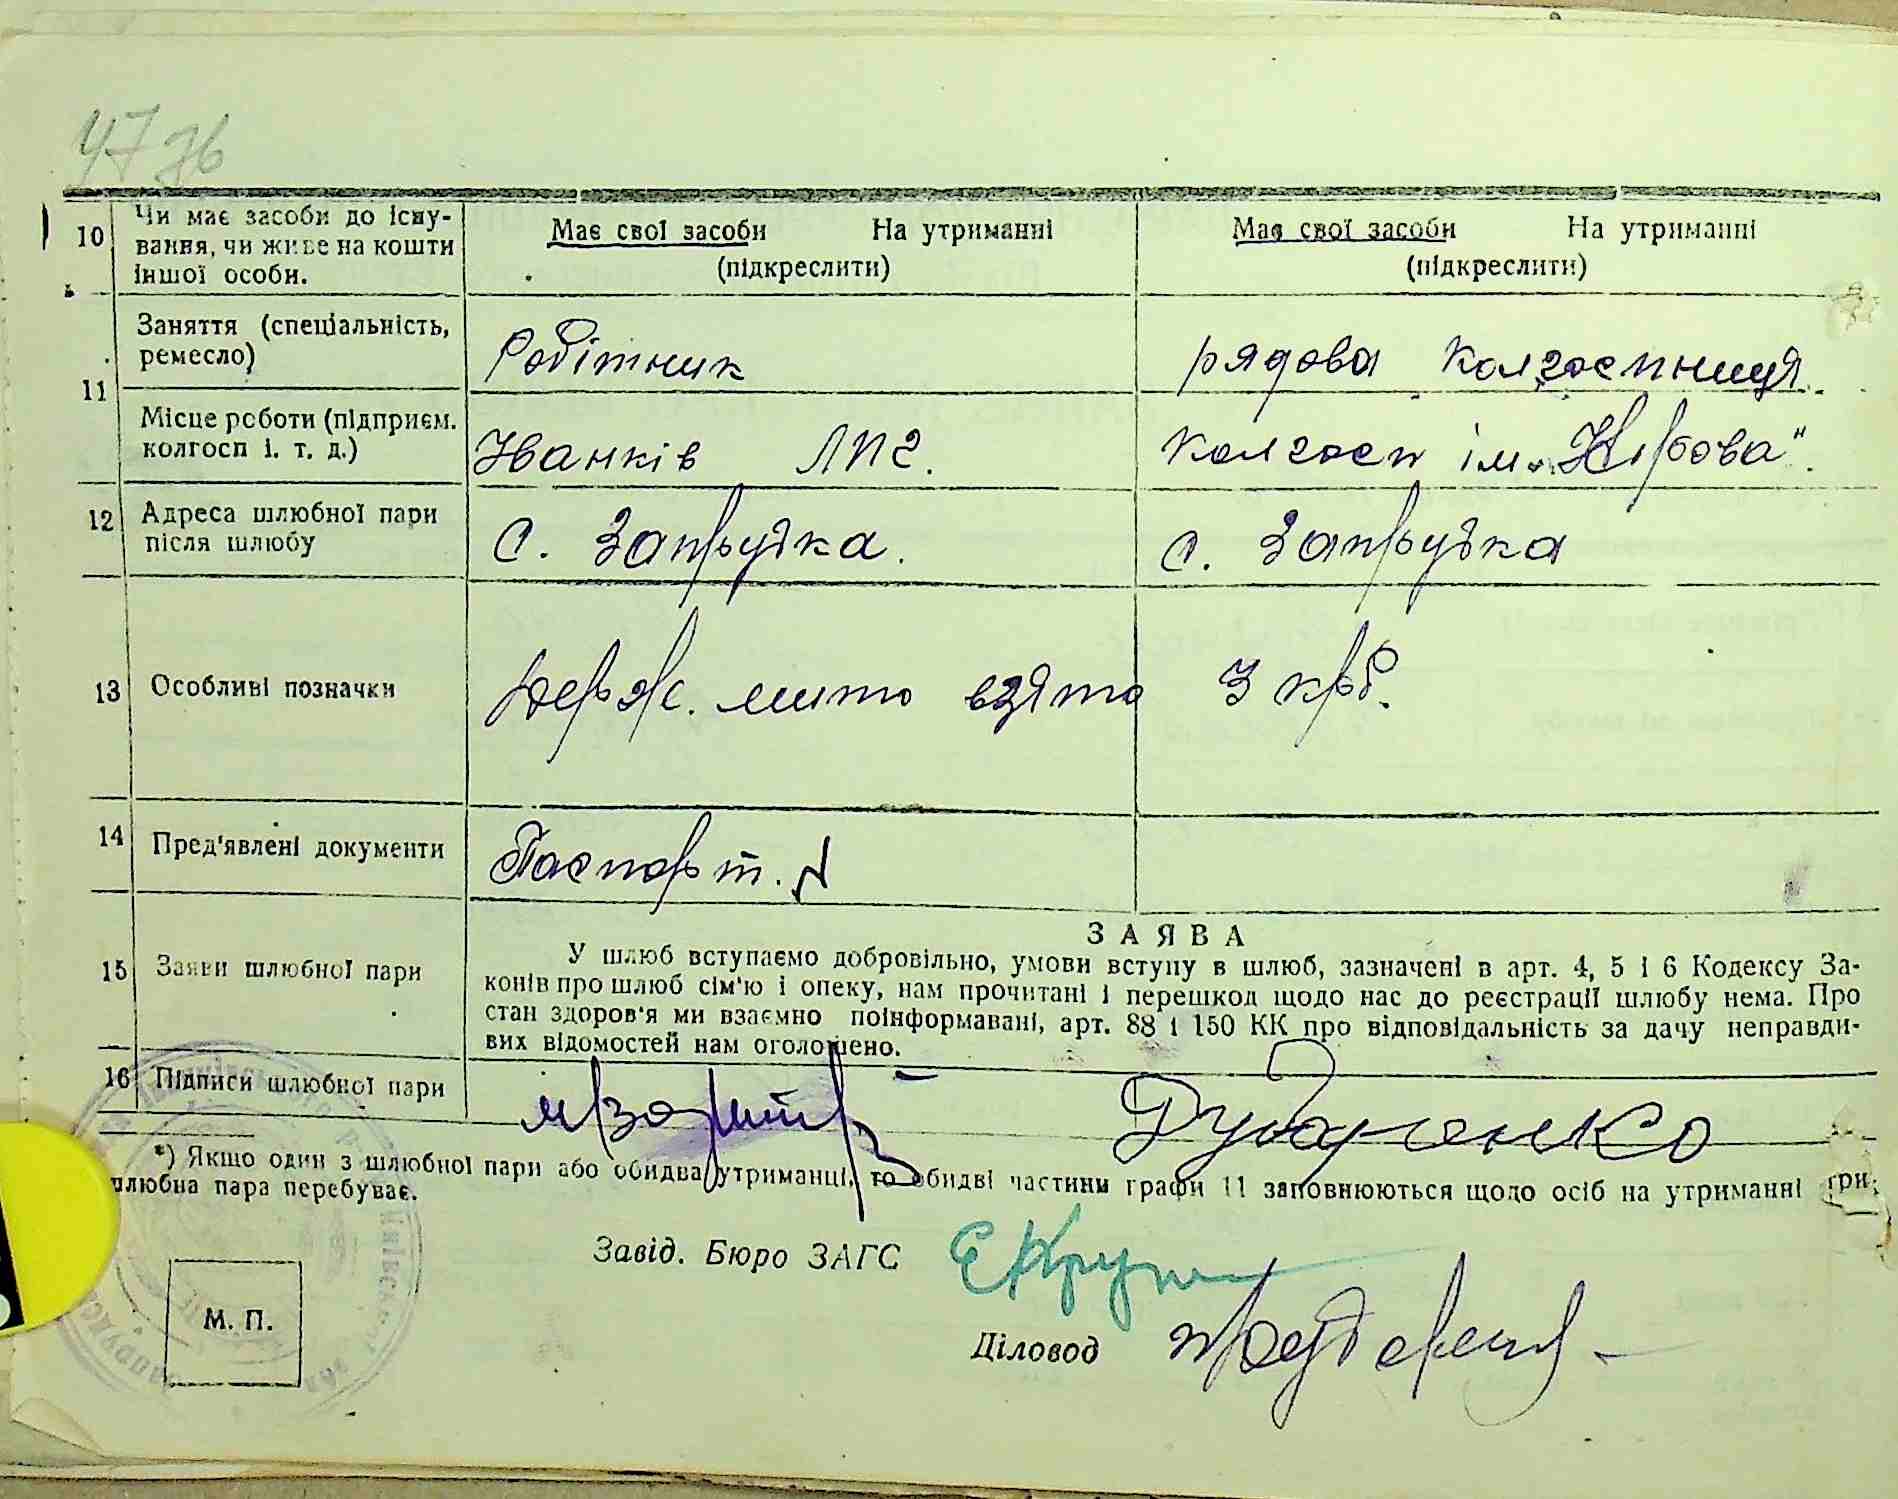 47 зв
10 Чи має засоби до існу-
вання, чи живе на кошти
іншої особи.
Має свої засоби На утриманні
(підкреслити)
Має свої засоби На утриманні
(підкреслити)
11 Заняття (спеціальність,
ремесло)
Робітник
рядова колгоспниця.
Місце роботи (підприєм.
колгосп і. т. д.)
Іванків ЛПГ.
колгосп ім. „Кірова“.
12 Адреса шлюбної пари
після шлюбу
с. Запрудка.
с. Запрудка
13 Особливі позначки
Держ. мито взято 3 крб.
14 Пред'явлені документи
Паспорт. N
15 Заяви шлюбної пари
ЗАЯВА
У шлюб вступаємо добровільно, умови вступу в шлюб, зазначені в арт. 4, 5 і 6 Кодексу За-
конів про шлюб сім'ю і опеку, нам прочитані і перешкод щодо нас до реєстрації шлюбу нема. Про
стан здоров'я ми взаємно поінформавані, арт. 88 і 150 КК про відповідальність за дачу неправди-
вих відомостей нам оголошено.
16 Підписи шлюбної пари
Дударенко
*) Якщо один з шлюбної пари або обидва утриманці, то обидві частини графи 11 заповнюються щодо осіб на утриманні
шлюбна пара перебуває.
Завід. Бюро ЗАГС
М. П.
Діловод